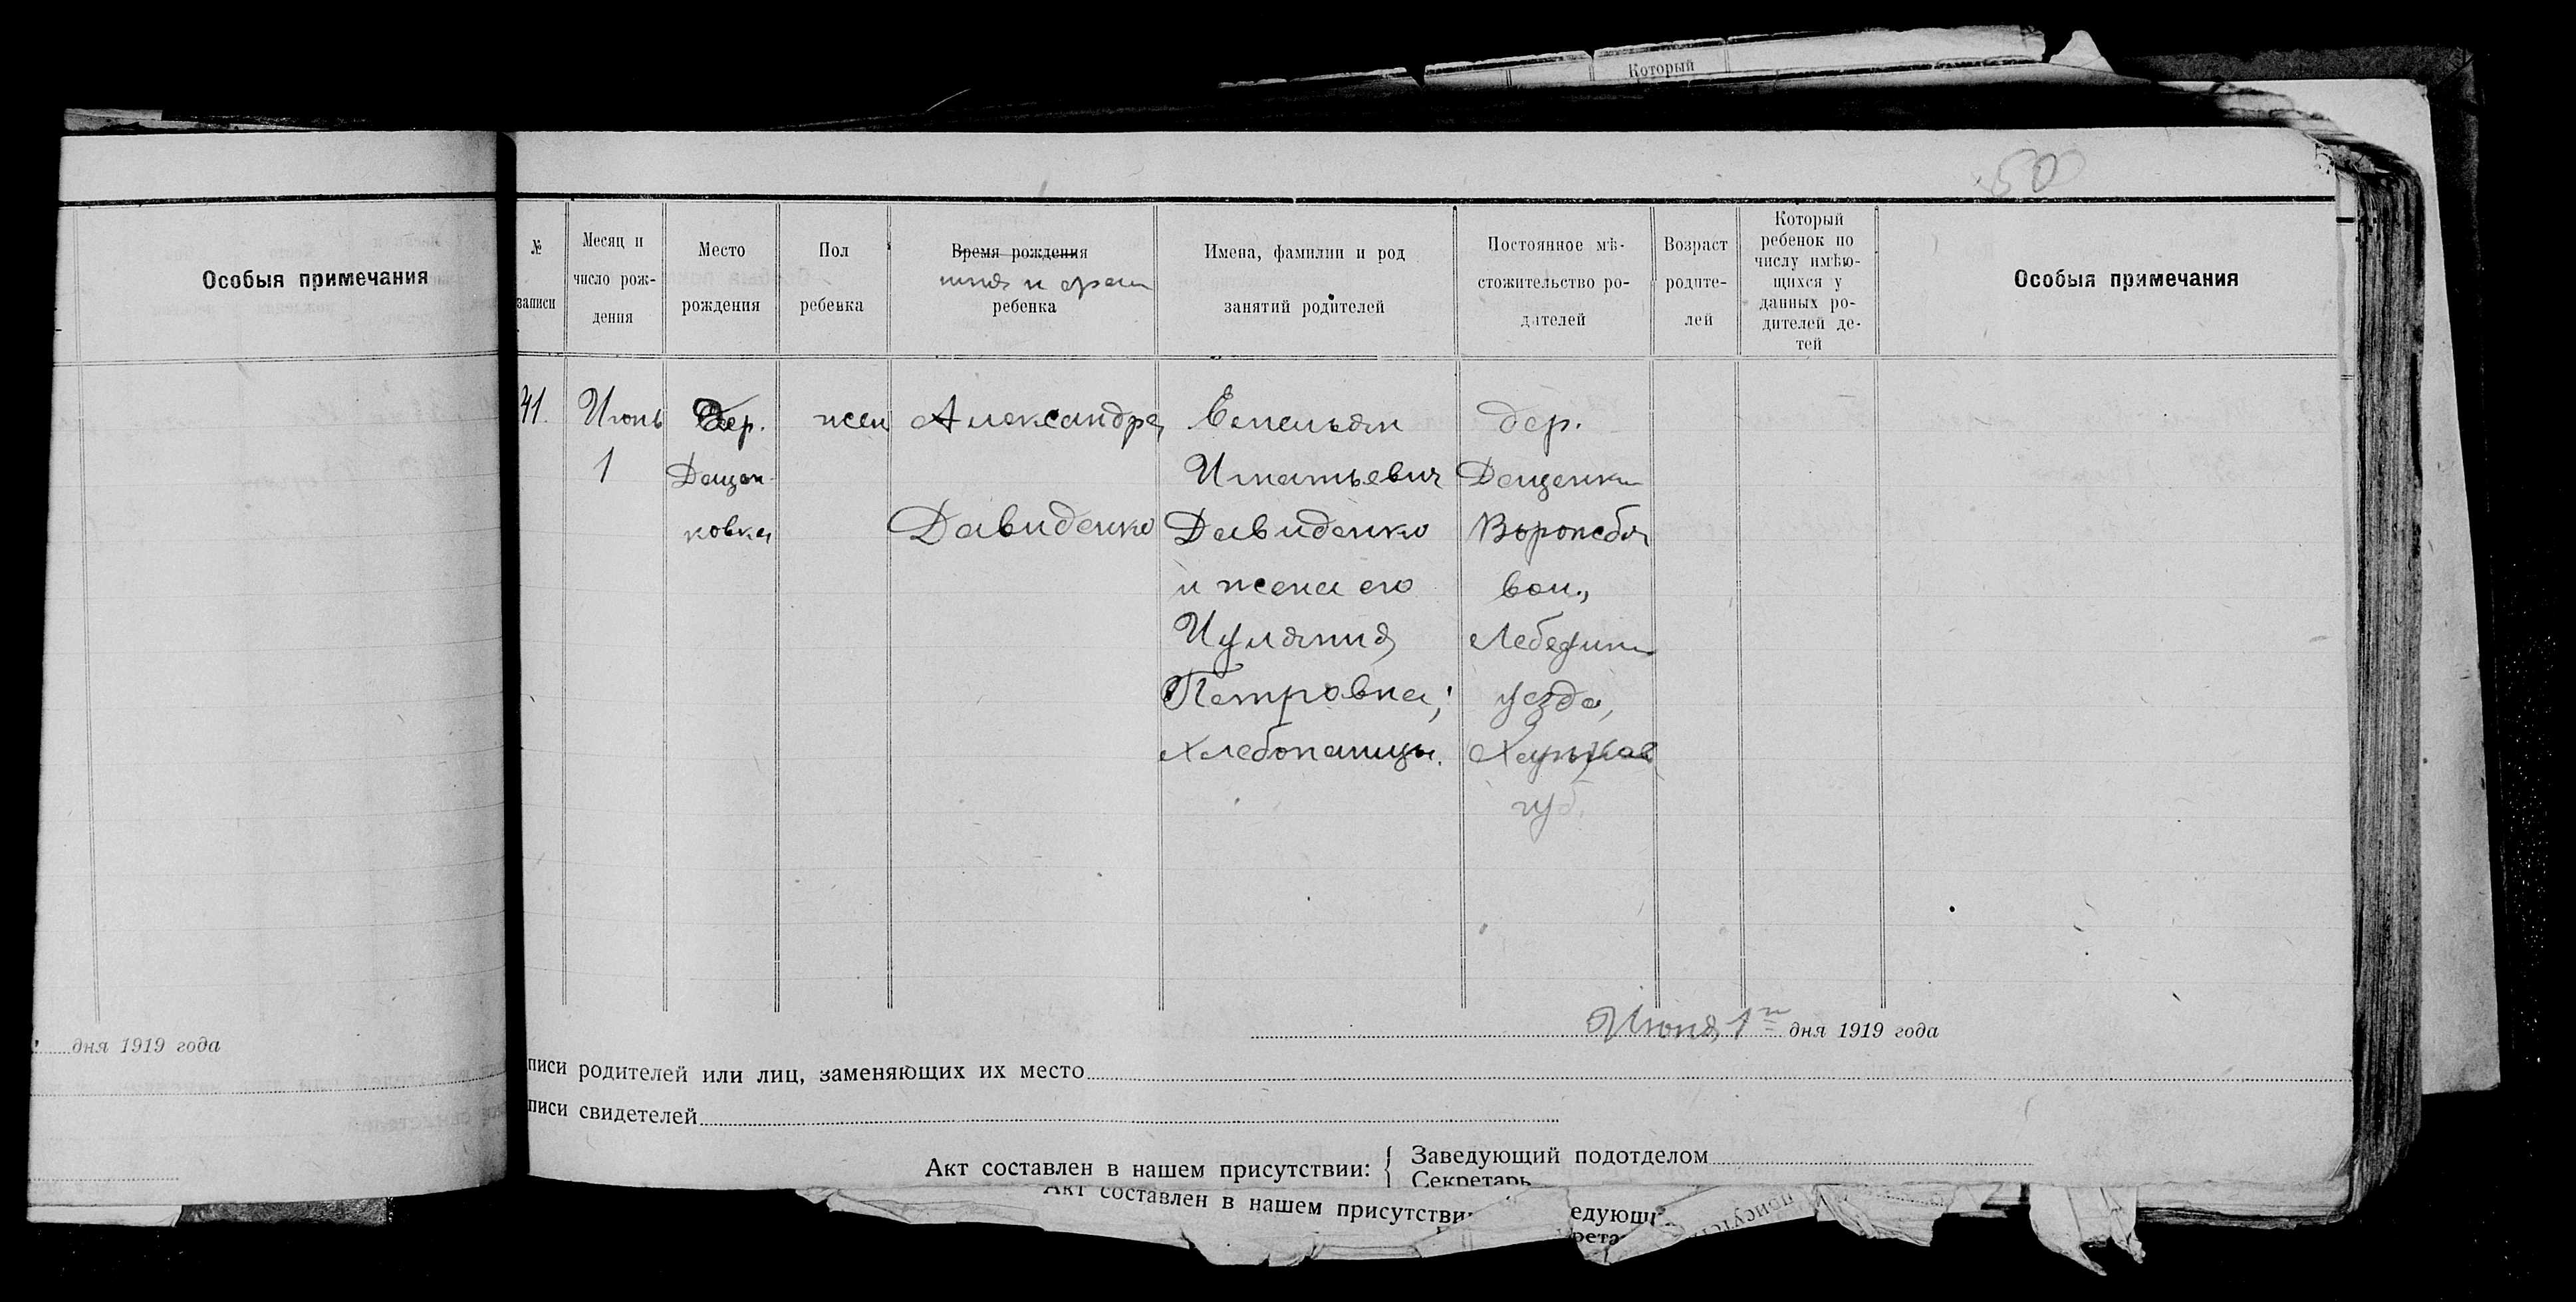 Который
50
Особыя примечания
№ записи
Месяц и число рож-дения
Место рождения
Пол ребенка
Время рождения
имя и фам
ребенка
Имена, фамилии и род занятий родителей
Постоянное мѣ-стожительство ро-дателей
Возраст родите-лей
Который ребенок по числу имѣю-щихся у данных ро-дителей де-тей
Особыя примечания
41.
Июнь
1
Дер.
Дацен-
ковка
жен
Александра
Давиденко
Емельян
Игнатьевич
Давиденко
и жена его
Иулания
Петровна;
хлебопашцы.
дер.
Даценки
Ворожбян
вол.,
Лебедин
уезда,
Харьков
губ.
дня 1919 года
Июня 1 дня 1919 года
писи родителей или лиц, заменяющих их место
писи свидетелей
Акт составлен в нашем присутствии: { Заведующий подотделом
Секретарь
Акт составлен в нашем присутстви
едующи
рета